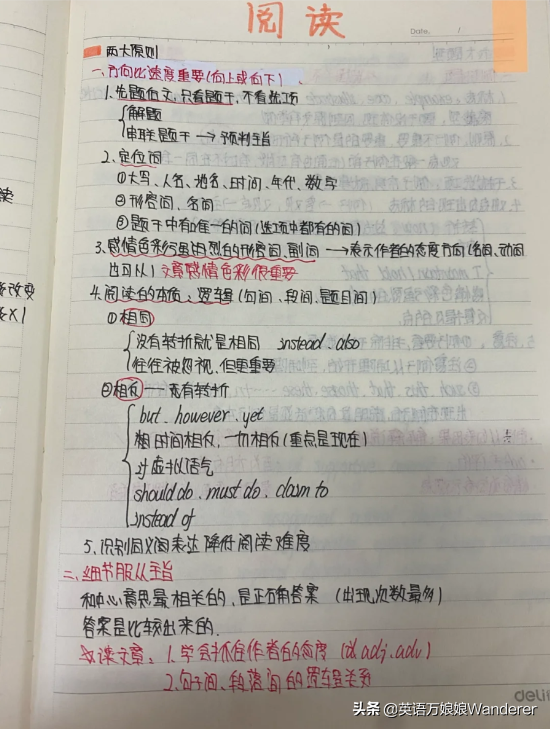 阅读
Date.
两大原则
一、方向比速度重要(向上或向下)
1. 先题后文, 只看题干, 不看选项
解题
串联题干 → 预判主旨
2. 定位词
①大写、人名、地名、时间、年代、数字
②形容词、名词
③题干中有唯一的词(选项中都有的词)
3. 感情色彩强烈的形容词, 副词 → 表示作者的态度方向(名词、动词
也可以) 文章感情色彩很重要
4. 阅读的本质: 逻辑 (句间、段间、题目间)
①相同
没有转折就是相同 instead . also
往往被忽视, 但更重要
②相反 — 还有转折
but . however . yet
时间相反, 一切相反(重点是现在)
虚拟语气
should do . must do . claim to
instead of
5. 识别同义词表达 降低阅读难度
二、细节服从主旨
和中心意思最相关的, 是正确答案 (出现次数最多)
答案是比较出来的.
读文章: 1. 学会抓住作者的态度 (vt. adj. adv)
2. 句子间、段落间的逻辑关系
改变
deli
头条 @英语万娘娘Wanderer